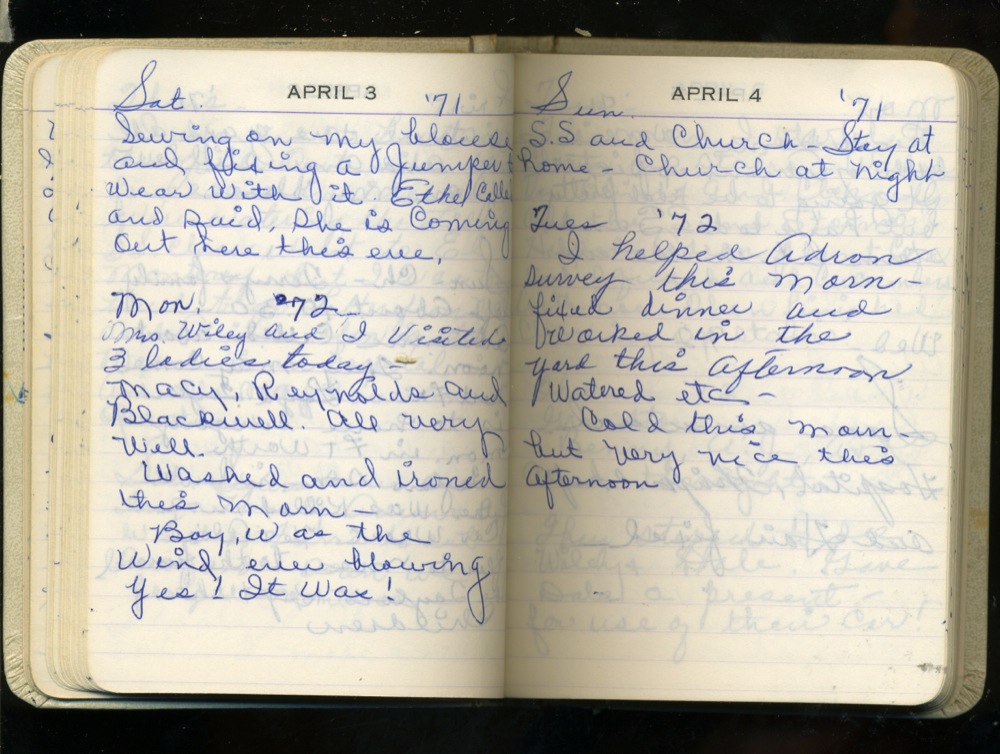 APRIL 3
Sat. '71
Sewing on my blouse
and fixing a Jumper t
wear with it. Ethel Calle
and said, she is Coming
Out here this eve,
Mon. '72
Mrs. Wiley and I Visited
3 ladies today -
Macy, Reynolds and
Blackwell. All very
Well.
Washed and ironed
this Morn -
Boy, Was the
Wind ever blowing
Yes! It Was!
APRIL 4
Sun. '71
S.S and Church - Stay at
home - Church at night
Tues '72
I helped Adron
survey this Morn -
fixed dinner and
worked in the
yard this Afternoon
Watered etc -
Cold this morn -
but very nice this
Afternoon